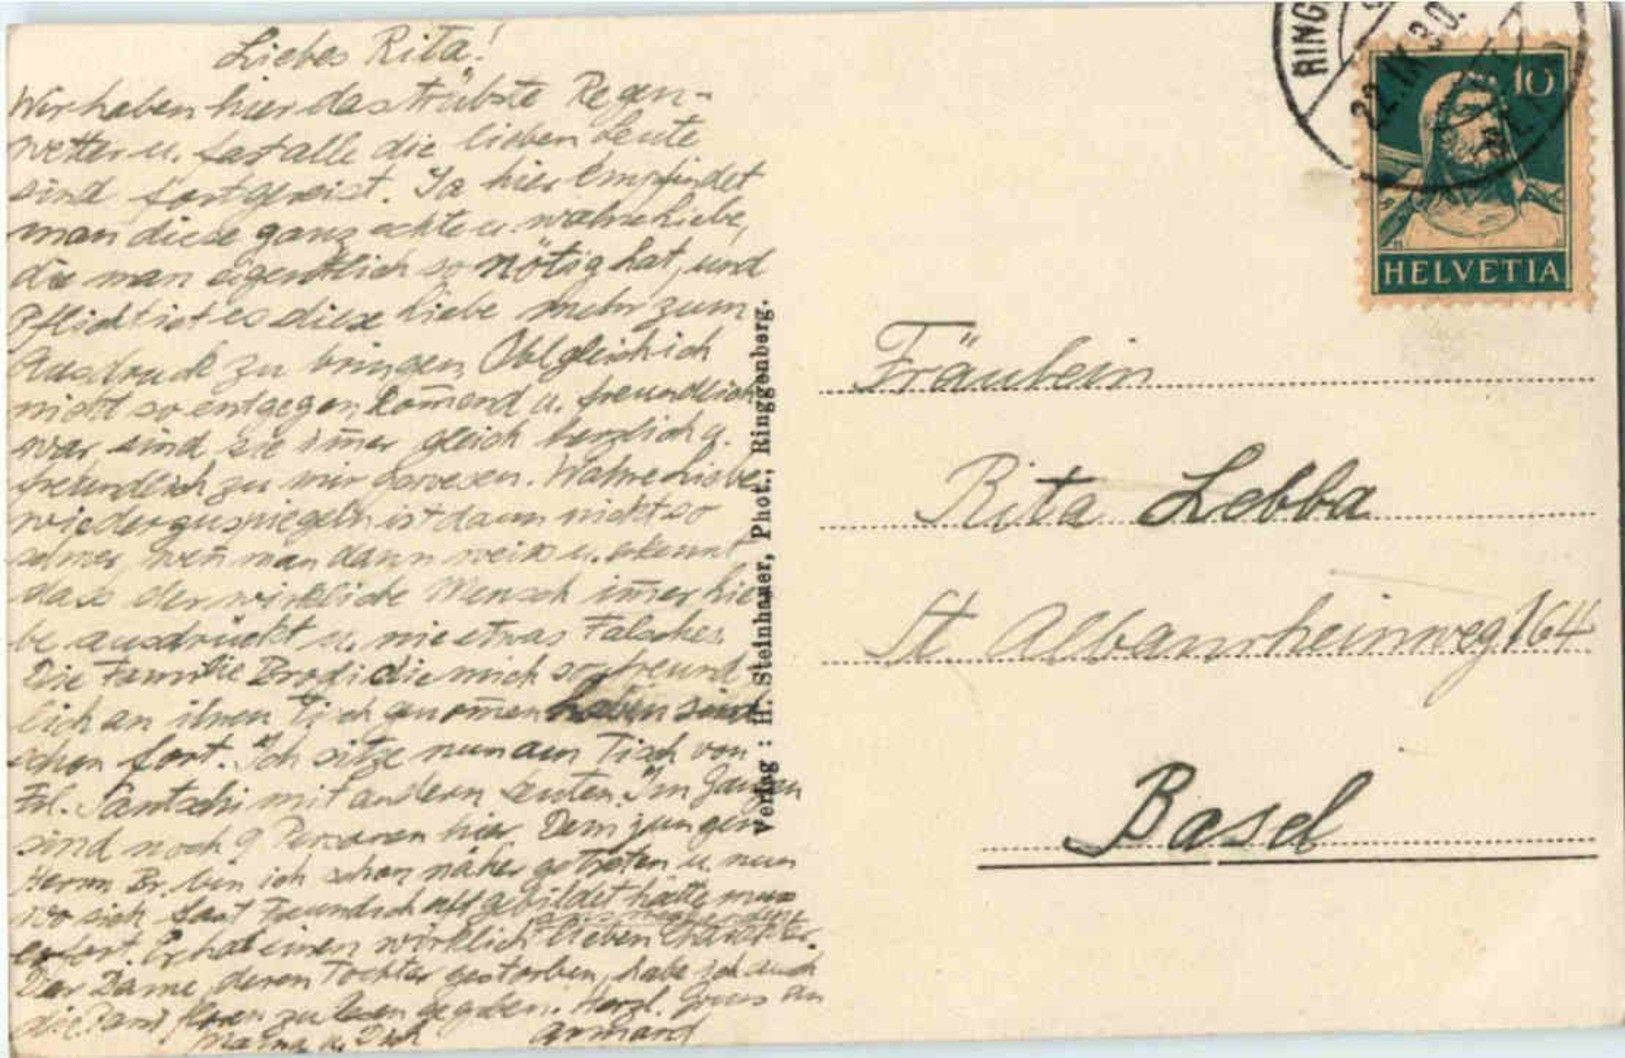 Liebes Rita!
Wir haben hier das trübste Regen-
wetter u. fast alle die lieben Leute
sind fortgereist. Ja hier empfindet
man diese ganz echte u. wahre Liebe,
die man eigentlich so nötig hat, und
Pflicht ist es diese Liebe mehr zum
Ausdruck zu bringen. Obgleich ich
nicht so entgegen kom̄end u. freundlich
war sind sie im̄er gleich herzlich u.
freundlich zu mir gewesen. Wahre Liebe
wiederzuspiegeln ist dann nicht so
schwer wen̄ man dann weiss u. erkennt
dass der wirkliche Mensch im̄er Lie
be ausdrückt u. nie etwas Falsches.
Die Familie Brodi die mich so freund
lich an ihren Tisch genom̄en haben sind
schon fort. Ich sitze nun am Tisch von
Frl. Santschi mit andern Leuten. Im Ganzen
sind noch 9 Personen hier. Dem jungen
Herrn Br. bin ich schon näher getreten u. nun
wo sich fast Freundschaft gebildet hätte muss
er fort. Er hat einen wirklich lieben Charakter.
Der Dame, deren Tochter gestorben, habe ich auch
die zu lesen gegeben. Herzl. Gruss an
Mama u. Dich Armand
Verlag : H. Steinhauer, Phot., Ringgenberg.
RING
22.IX.30.
10
HELVETIA
Fräulein
Rita Lebba
St. Albanrheinweg 164
Basel